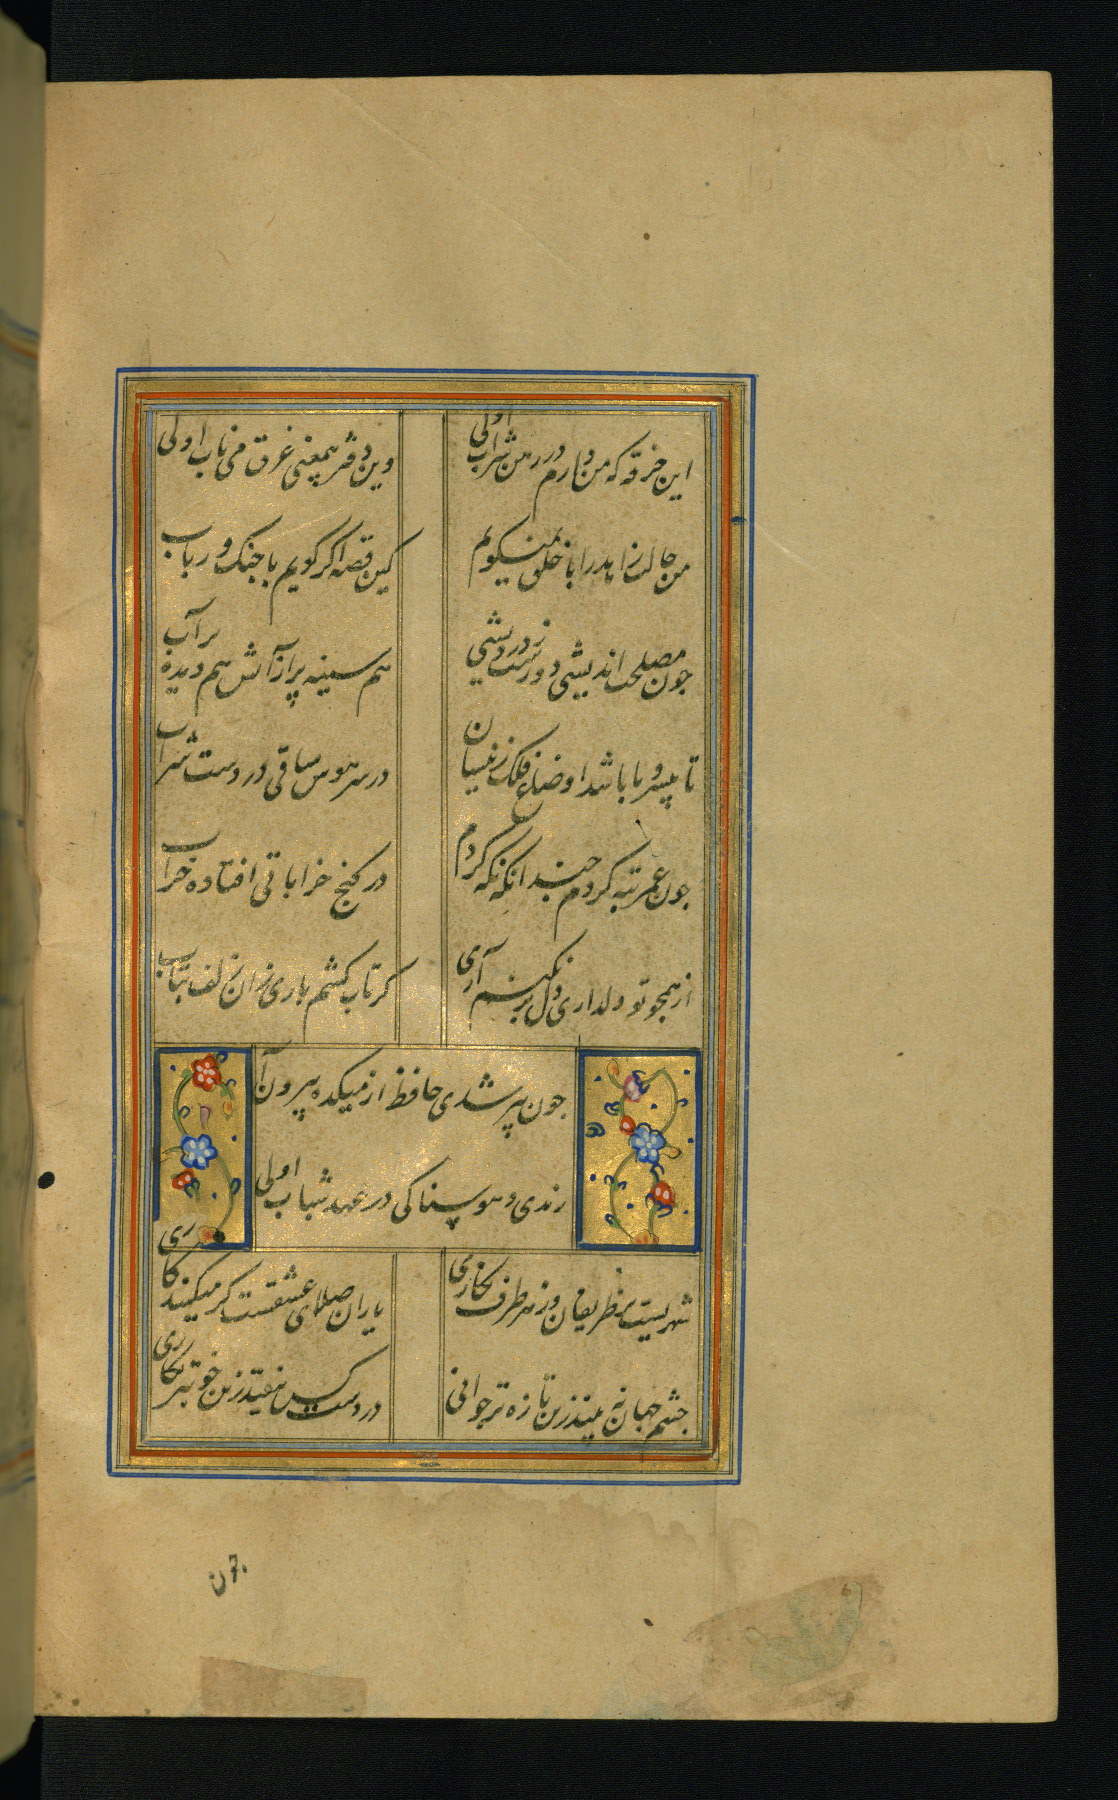 این خرقه که من دارم در رهن شراب اولی
وین دفتر بیمعنی غرق می ناب اولی
من حالت زاهد را با خلق نمیگویم
کین قصه اگر گویم با جنک و رباب
جون مصلحت اندیشی دورست ز دردیشی
هم سینه پر از آتش هم دیده پر آب
تا بیسر و پا باشد اوضاع فلک زینسان
در سر هوس ساقی در دست شراب
جون عمر تبه کردم جندانکه نکه کردم
در کنج خراباتی افتاده خراب
از همجو تو دلداری دل بر نکنم آری
کر تاب کشم باری زان زلف بتاب
جون پیر شدی حافظ از میکده بیرون آ
رندی و هوسناکی در عهد شباب اولی
شهریست بر ظریفان وز هر طرف نکاری
یاران صلای عشقست کر میکنید کاری
جشم جهان نه بیند زین تازه تر جوانی
در دست کس نیفتد زین خوبتر نکاری